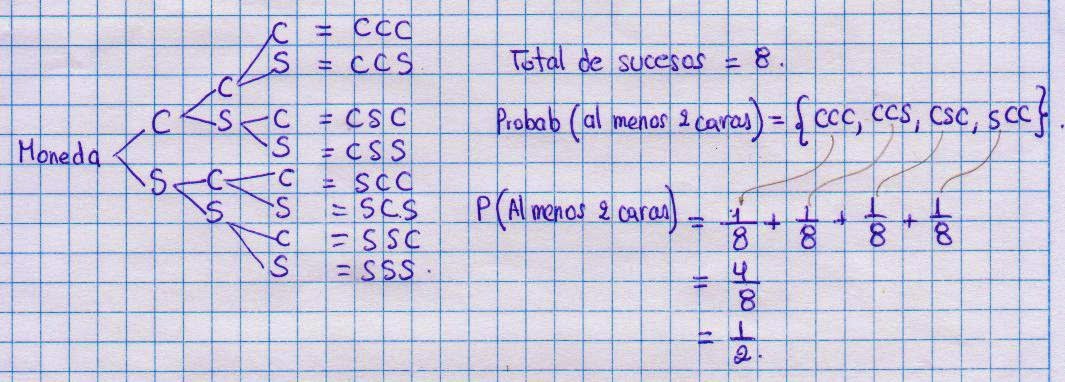 C = CCC
S = CCS
C
C S C = CSC
S = CSS
Moneda
S C C = SCC
S S = SCS
C = SSC
S = SSS.
Total de sucesos = 8.
Probab (al menos 2 caras) = {CCC, CCS, CSC, SCC}.
P (Al menos 2 caras) = 1/8 + 1/8 + 1/8 + 1/8
= 4/8
= 1/2.